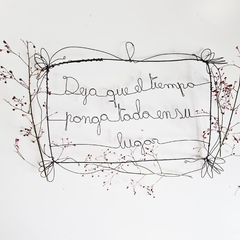 Deja que el tiempo
ponga toda en su
lugar